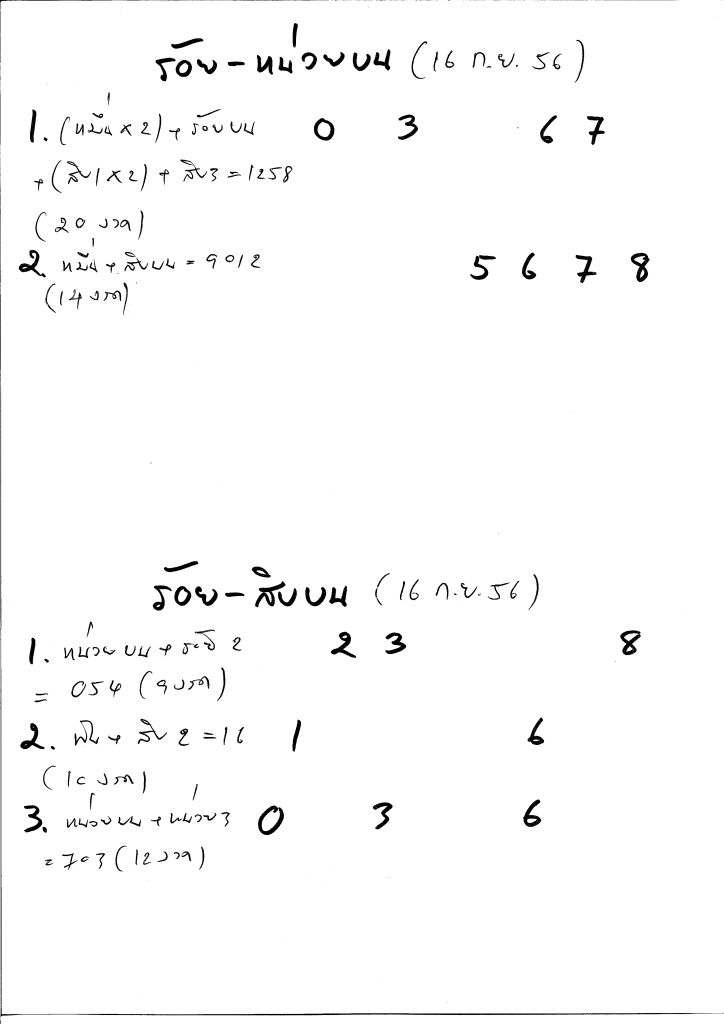 ร้อย - หน่วยบน (16 ก.ย. 56)
1. (หมื่น x 2) + ร้อยบน 0 3 6 7
+ (สิบ1 x 2) + สิบ3 = 1258
(20 งวด)
2. หมื่น + สิบบน = 9012 5 6 7 8
(14 งวด)
ร้อย - สิบบน (16 ก.ย. 56)
1. หน่วยบน + 2 2 3 8
= 054 (9 งวด)
2. พัน + สิบ 2 = 16 1 6
(10 งวด)
3. หน่วยบน + หน่วย3 0 3 6
= 703 (12 งวด)